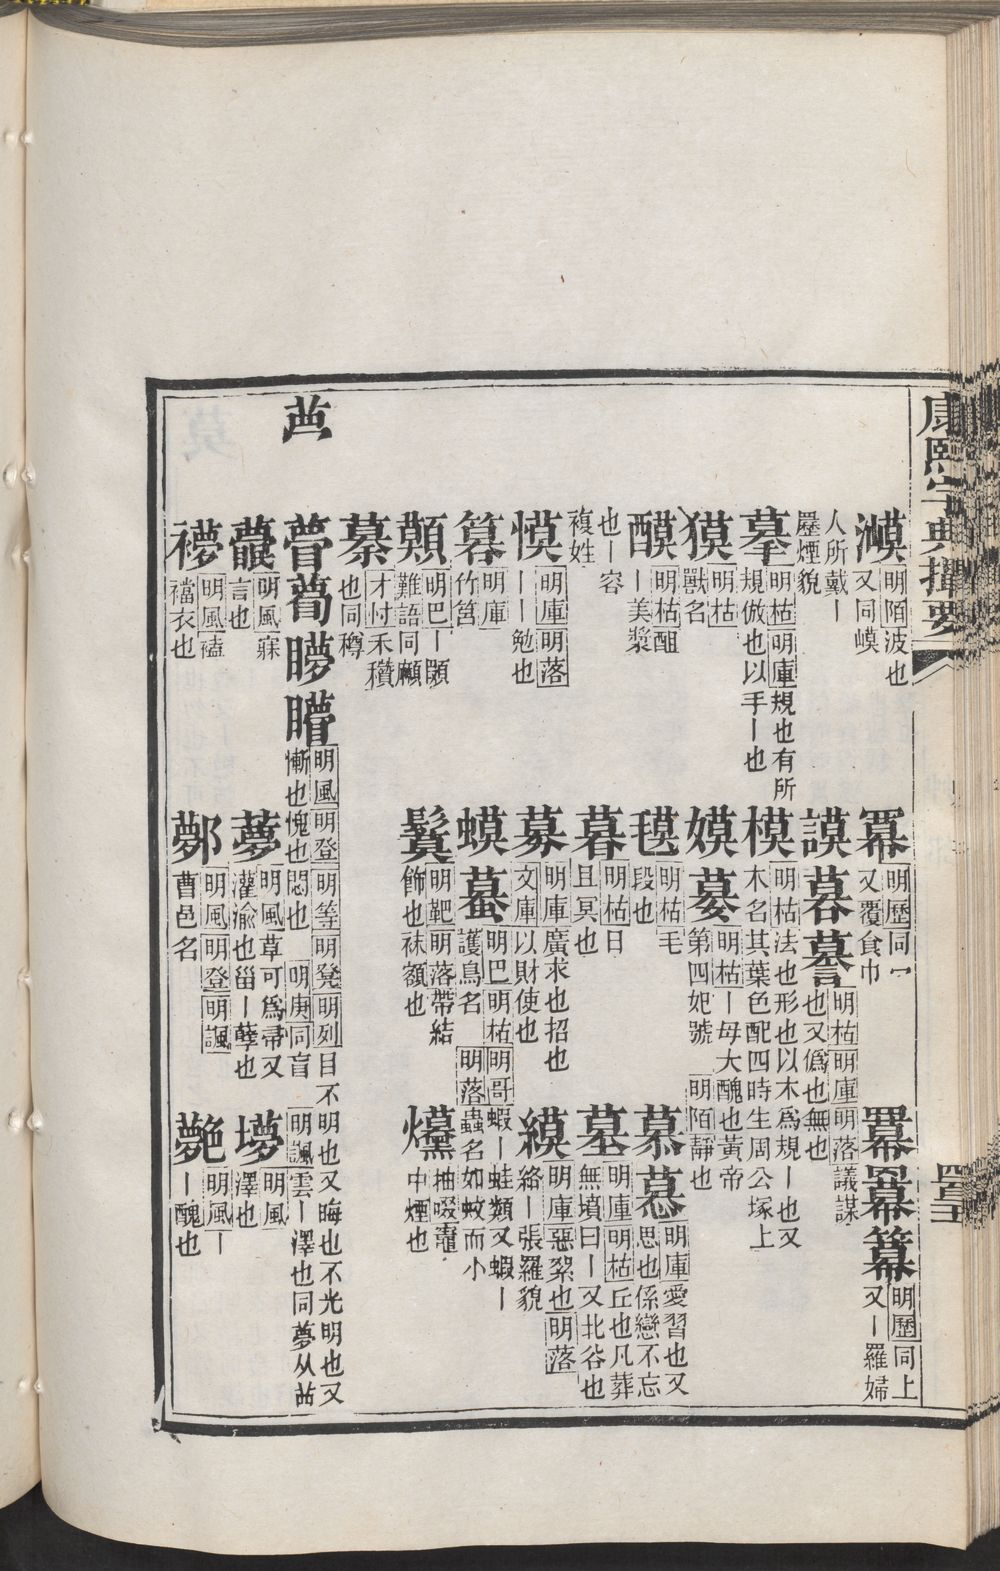 康熙字典撮要
漠 明陌波也又同嗼
冪 明歷同冖又覆食巾
羃 冪 簚 明歷同上又丨羅婦
人所戴丨
羃煙貌
謨 暮 謩 明枯明庫明落議謀也又僞也無也
摹 明枯明庫規也有所規倣也以手丨也
模 明枯法也形也以木爲規丨也又木名其葉色配四時生周公塚上
獏 明枯獸名
嫫 㜈 明枯丨母大醜也黃帝第四妃號 明陌靜也
醭 明枯酼丨美漿
毷 明枯毛段也
慕 慕 明庫愛習也又思也係戀不忘
也丨容
複姓
暮 明枯日且冥也
墓 明庫明枯丘也凡葬無墳曰丨又北谷也
慔 明庫明落丨丨勉也
募 明庫廣求也招也文庫以財使也
縸 明庫惡絮也明落絡丨張羅貌
幕 明庫竹笪
蟆 蟇 明巴明枯明哥蝦丨蛙類又蝦丨護鳥名 明落蟲名如蚊而小
顭 明巴丨顋難語同顢
鬕 明靶明落帶結飾也袜額也
爅 抽啜竈中煙也
蓁 才忖禾穳也同䅐
𦭝
瞢 蕄 矇 矒 明風明登明等明凳明列目不明也又晦也不光明也又慚也愧也悶也 明庚同盲 明諷雲丨澤也同夢从𦭝
䆿 明風寐言也
夢 明風草可爲帚又灌渝也甾丨孽也
㙹 明風澤也
𧝎 明風䙪襠衣也
鄸 明風明登明諷曹邑名
艷 明風丨丨醜也
四三